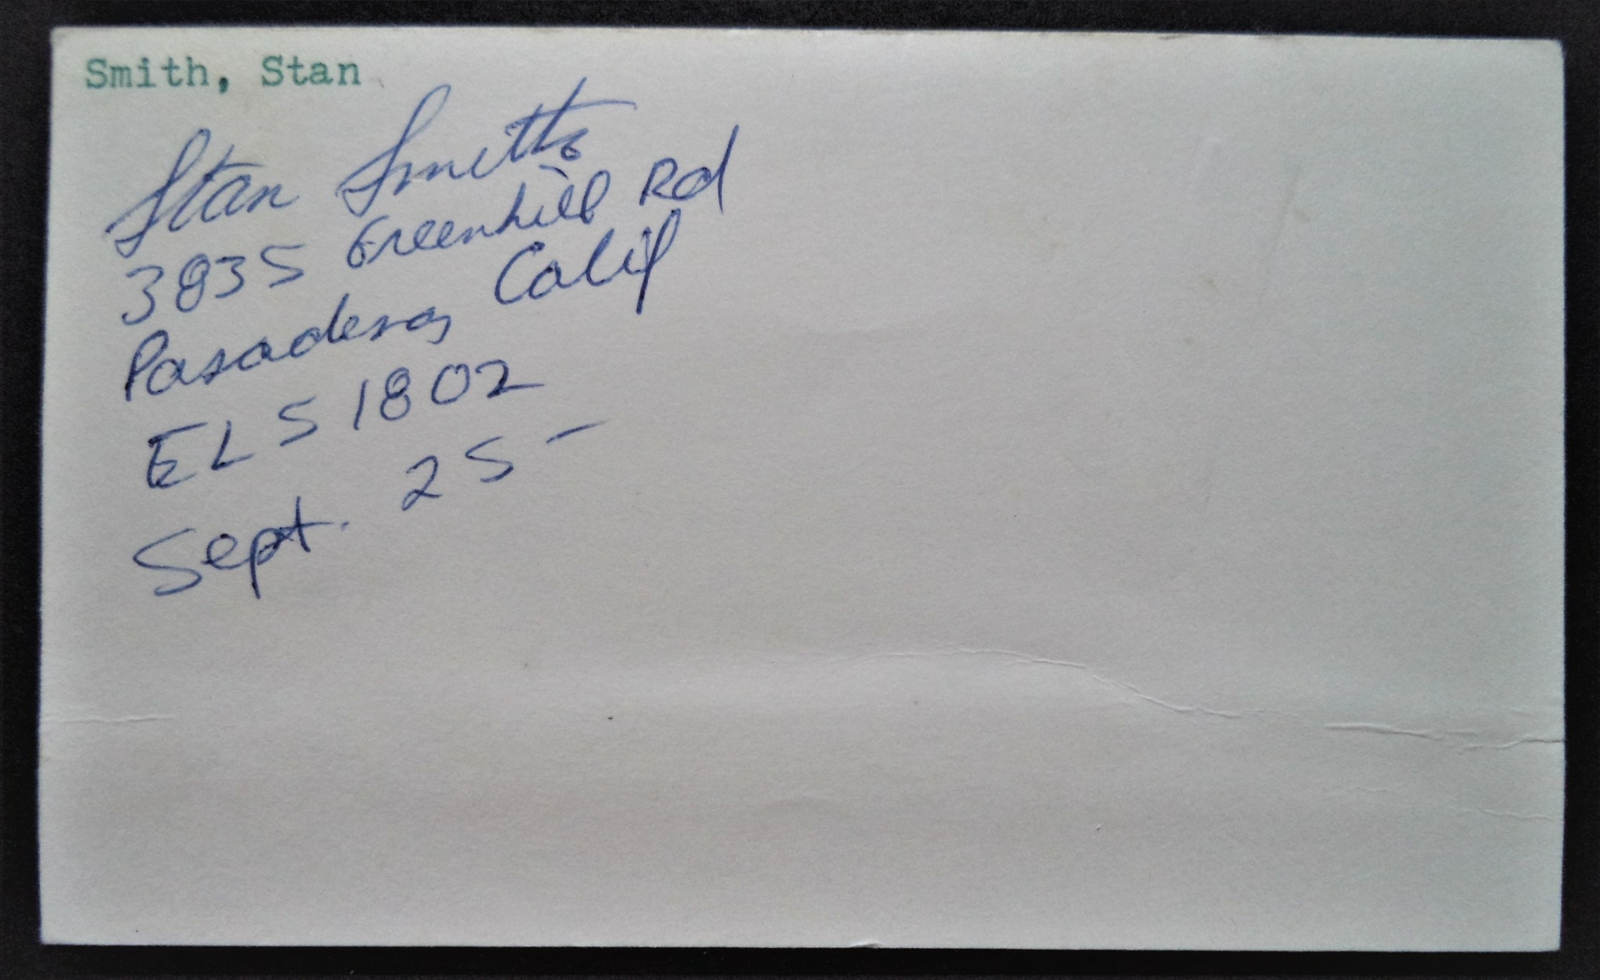 Smith, Stan
Stan Smith
3835 Greenhill Rd
Pasadena, Calif
EL 51802
Sept. 25 -